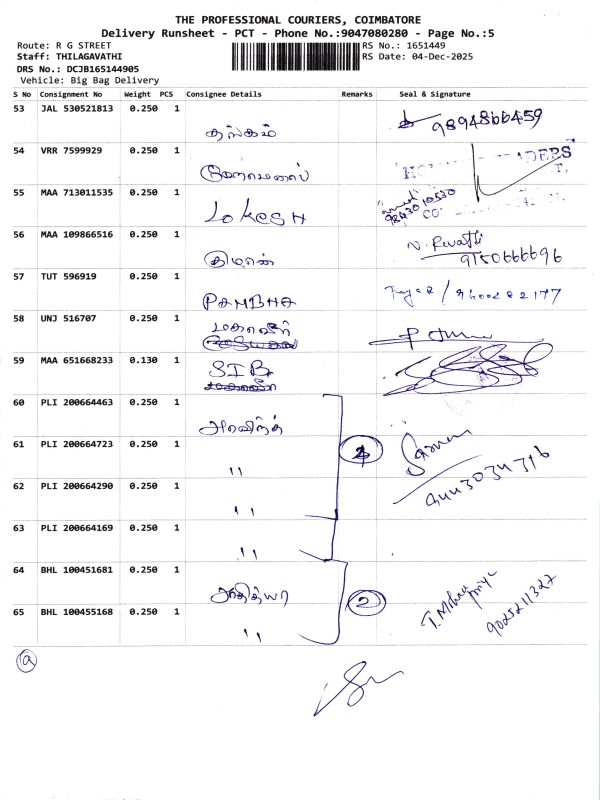 THE PROFESSIONAL COURIERS, COIMBATORE
Delivery Runsheet - PCT - Phone No.:9047080280 - Page No.:5
Route: R G STREET RS No.: 1651449
Staff: THILAGAVATHI RS Date: 04-Dec-2025
DRS No.: DCJB165144905
Vehicle: Big Bag Delivery
S No Consignment No Weight PCS Consignee Details Remarks Seal & Signature
53 JAL 530521813 0.250 1
தங்கம் 9894866459
54 VRR 7599929 0.250 1
55 MAA 713011535 0.250 1
LOKESH 9843010530
56 MAA 109866516 0.250 1
கிரண் 9150666696
57 TUT 596919 0.250 1
PAMBHA 9600282177
58 UNJ 516707 0.250 1
மகாவீர்
59 MAA 651668233 0.130 1
SIB
60 PLI 200664463 0.250 1
அரவிந்த்
61 PLI 200664723 0.250 1
"
62 PLI 200664290 0.250 1
" 9443034316
63 PLI 200664169 0.250 1
"
64 BHL 100451681 0.250 1
ஆதித்யா 2
65 BHL 100455168 0.250 1
" 9025211327